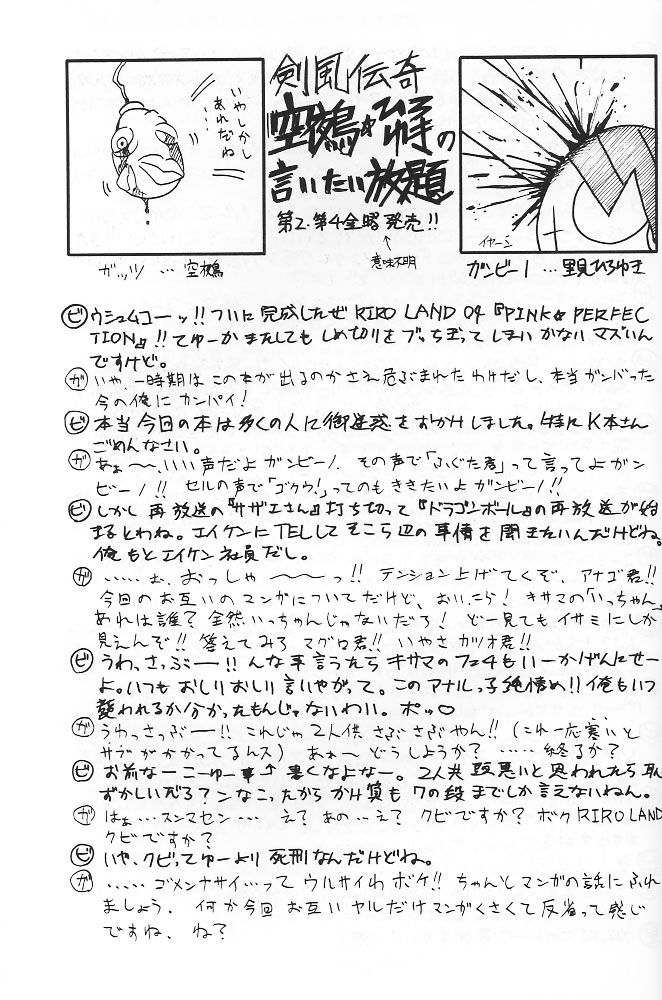 いやしかし
あれだね
剣風伝奇
空鵺☆ひろ寺の
言いたい放題
第2.第4金曜発売!!
↑
意味不明
イヤーン
ガッツ … 空鵺
ガンビーノ … 里見ひろゆき
㋪ウシュムコーッ!!ついに完成したぜRIRO LAND 04『PINK☆PERFEC
TION』!!てゆーかまたしてもしめ切りをブッちぎってしまいかないマズいん
ですけど。
㋕いや、一時期はこの本が出るのかさえ危ぶまれたわけだし、本当ガンバった
今の俺にカンパイ!
㋪本当今回の本は多くの人に御迷惑をおかけしました。特にK本さん
ごめんなさい。
㋕あぁ〜〜、いい声だよガンビーノ。その声で「ふぐた君」って言ってよガン
ビーノ!!セルの声で「ゴクウ!」ってのもききたいよガンビーノ!!
㋪しかし再放送の『サザエさん』打ち切って『ドラゴンボール』の再放送が始
まるとわね。エイケンにTELしてそこら辺の事情を聞きたいんだけどね。
俺もとエイケン社員だし。
㋕……む、おっしゃ〜〜〜っ!!テンション上げてくぞ、アナゴ君!!
今回のお互いのマンガについてだけど、おい、こら!キサマの「いっちゃん」
あれは誰?全然いっちゃんじゃないだろ!どー見てもイサミにしか
見えんぞ!!答えてみろマグロ君!!いやさカツオ君!!
㋪うわっ、さっぶー!!んな事言うたらキサマのフェ4もいーかげんにせー
よ。いつもおしりおしり言いやがって。このアナルっ子純情め!!俺もいつ
襲われるか分かったもんじゃないわい。ポッ♡
㋕うわっさっぶー!!これじゃ2人供さぶさぶやん!!(これ一応寒いと
サブがかかってるんス)あぁ〜どうしようか?……終るか?
㋪お前なーこーゆー事↑書くなよなー。2人共頭悪いと思われたら恥
ずかしいだろ?ンなこったからかけ算も7の段までしか言えないねん。
㋕はぁ…スンマセン…え?あの‥え?クビですか?ボクRIRO LAND
クビですか?
㋪いや、クビってゆーより死刑なんだけどね。
㋕……ゴメンナサイ…ってウルサイわボケ!!ちゃんとマンガの話にふれ
ましょう.何か今回お互いヤルだけマンガくさくて反省って感じ
ですね、ね?